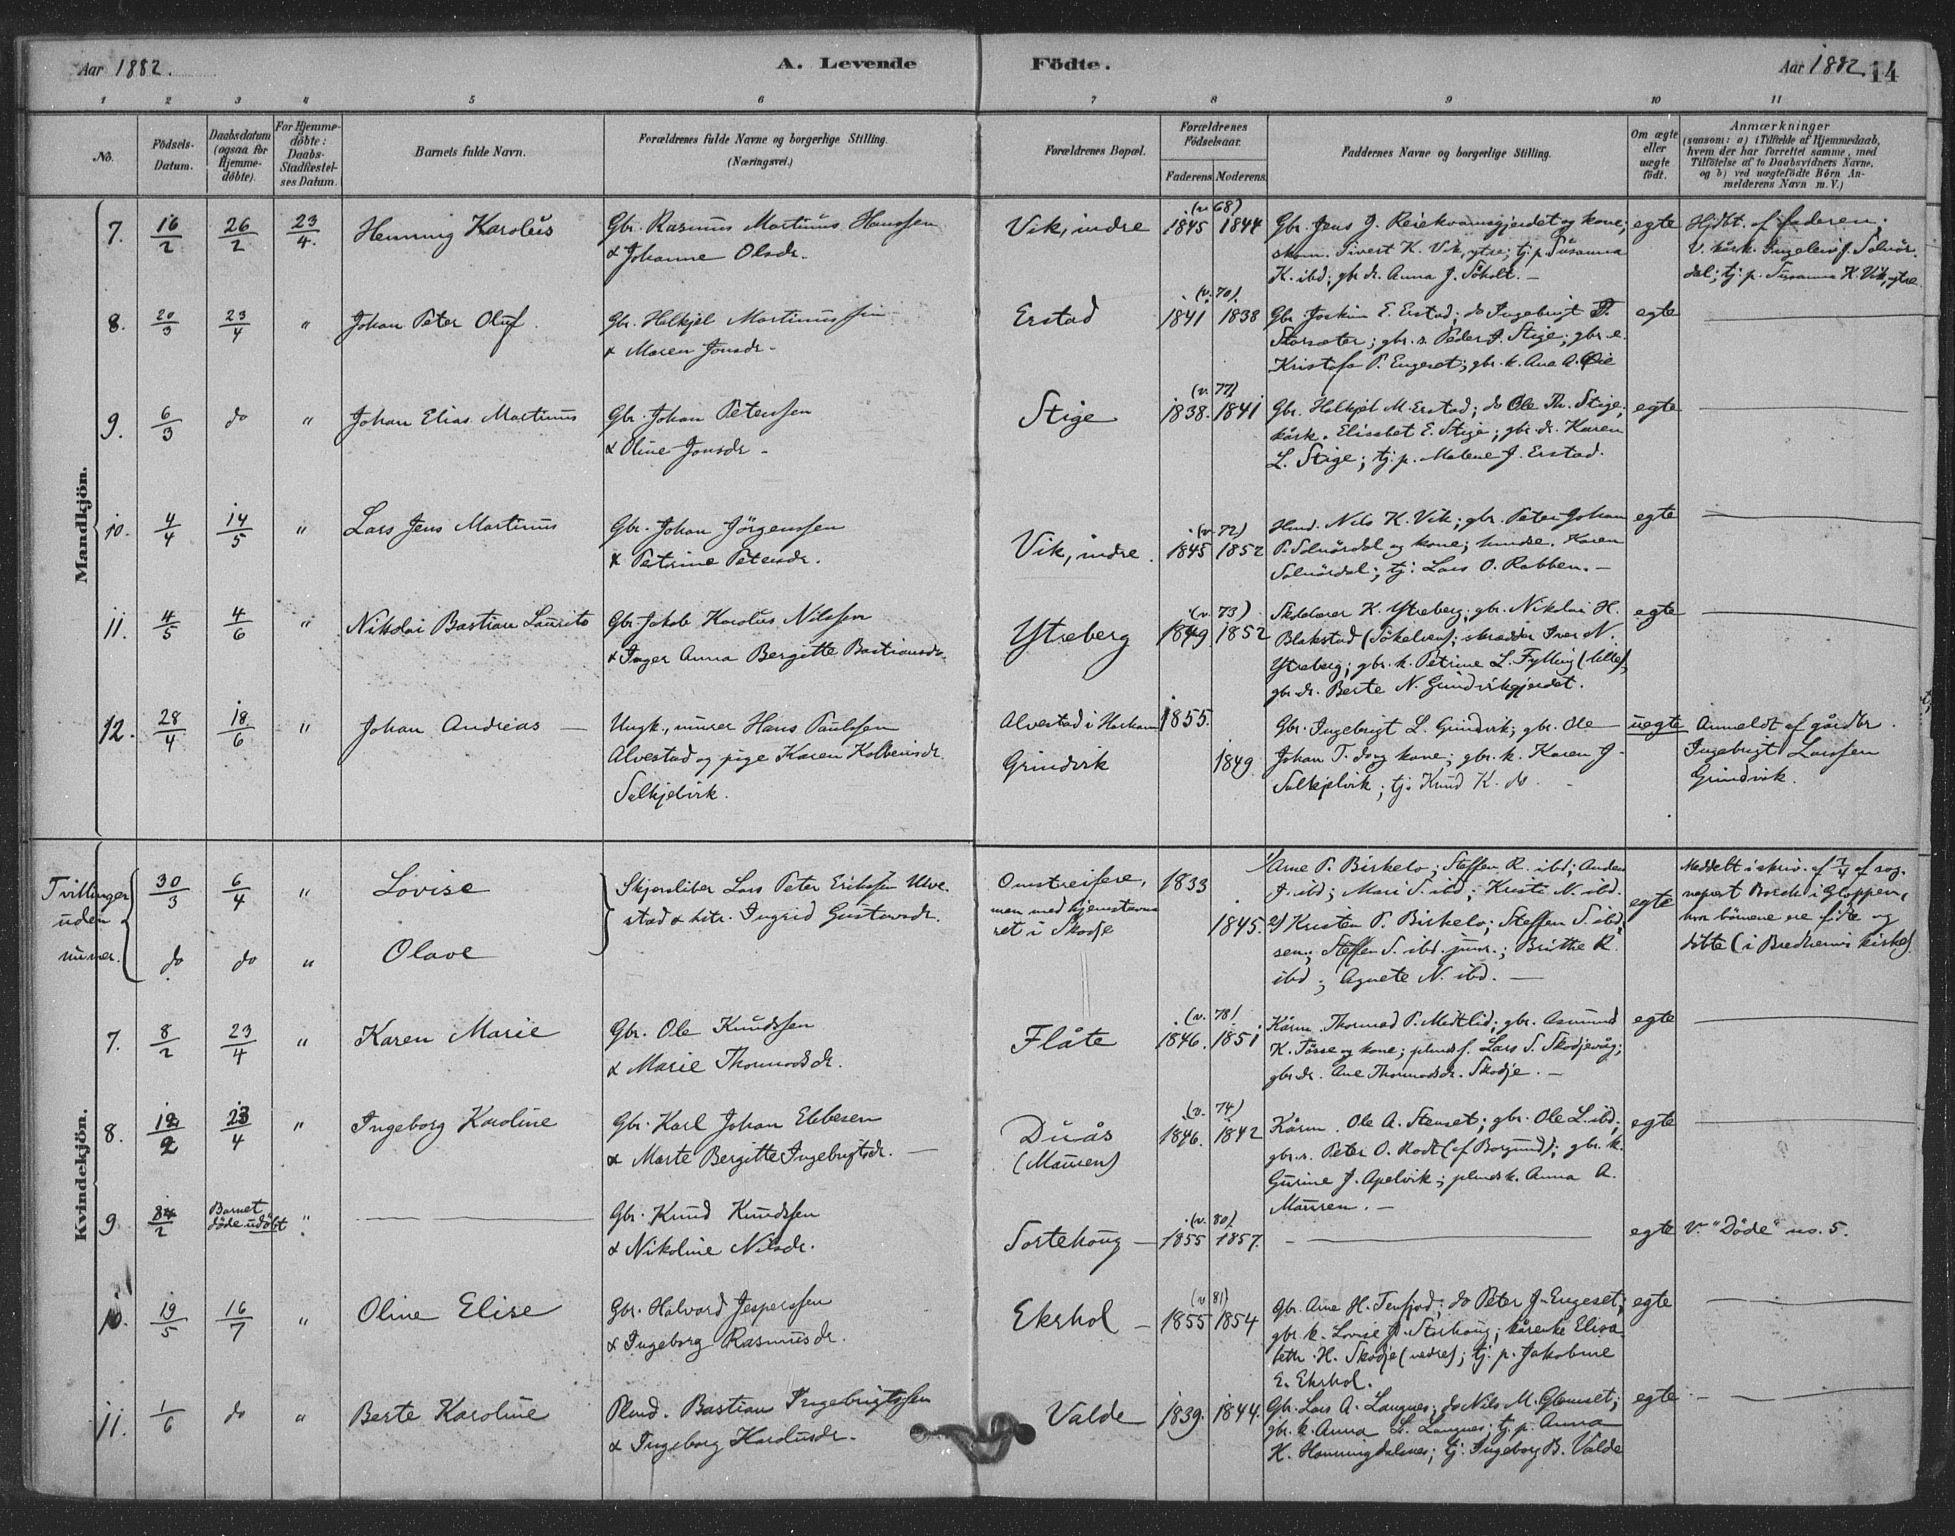 Aar 1882.
A. Levende
Födte.
Aar 1882
14
1 2 3 4 5 6 7 8 9 10 11
No.
Födsels-
Datum.
Daabsdatum
(ogsaa for
Hjemme-
döbte).
For Hjemme-
döbte:
Daabs-
Stadfæstel-
ses Datum.
Barnets fulde Navn.
Forældrenes fulde Navne og borgerlige Stilling.
(Næringsvei.)
Forældrenes Bopæl.
Forældrenes
Födselsaar.
Faderens. Moderens.
Faddernes Navne og borgerlige Stilling.
Om ægte
eller
uægte
födt.
Anmærkninger
(saasom: a) i Tilfælde af Hjemmedaab,
hvem der har forrettet samme, med
Tilföielse af to Daabsvidners Navne,
og b) ved uægtefödte Börn An-
melderens Navn m. V.)
Mandkjön.
7. 16/2 26/2 23/4. Henning Karolus
Gbr. Rasmus Martinus Hanssen
& Johanne Olsdr.
Vik, indre
(v. 68)
1845 1844
Gbr. Jens J. Reiekvamsgjerdet og kone;
Sivert K. Vik, ytre; tj. p. Susanna
K. ibd; gbr. dr. Anna J. Soholt. –
egte
Hjdbt. af faderen.
V. kårk. J. Solnör-
dal; tj. p. Susanna K. Vik, ytre
8. 20/3 23/4 " Johan Peter Oluf.
Gbr. Helkjel Martinussen
& Maren Jonsdr.
Erstad
(v. 70).
1841 1838
Gbr. Joakim E. Erstad; do Ingebrigt P.
Storsæter; gbr. s. Peder J. Stige; gbr. e.
Kristofa P. Engeset; gbr. k. Ana A. Öie
egte
9. 6/3 do " Johan Elias Martinus
Gbr. Johan Peterssen
& Oline Jonsdr –
Stige
(v. 77)
1838. 1841
Gbr. Helkjel M. Erstad; do Ole Th. Stige;
kårk. Elisabet E. Stige; gbr. dr. Karen
L. Stige; tj. p. Malene J. Erstad.
egte
10. 4/4 14/5 " Lars Jens Martinus
Gbr. Johan Jörgenssen
& Petrine Petersdr.
Vik, indre.
(v. 72)
1845 1852
Hmd. Nils K. Vik; gbr. Peter Johan
P. Solnördal og kone; Karen
Solnördal; tj: Lars O. Rabben. –
egte
11. 4/5 4/6 " Nikolai Bastian Laurits
Gbr. Jakob Karolus Nilssen
& Inger Anna Bergitte Bastiansdr.
Ytreberg
(v. 73)
1849 1852
K. Ytreberg; gbr. Nikolai H.
Blakstad (Sökelven); skrædder Iver N.
Ytreberg; gbr. k. Petrine L. Fylling (lille);
gbr. dr. Berte N. Grindvikgjerdet.
egte
12. 28/4 18/6 " Johan Andreas —
Ungk., murer Hans Paulssen
Alvestad og pige Karen Kolbeinsdr.
Solkjelvik.
Alvestad i Harham
Grindvik
1855.
1849.
Gbr. Ingebrigt L. Grindvik; gbr. Ole
Johan T. do og kone; gbr. k. Karen J.
Solkjelvik; tj. Knud K. do.
uegte
Anmeldt af gårdbr.
Ingebrigt Larssen
Grindvik.
Tvillinger
uden
numer.
30/3 6/4 " Lovise
do do " Olave
Skjersliber Lars Peter Erikssen Ulve-
stad & hstr. Ingrid Gustavsdr.
Omstreifere,
men med hjemstavns-
ret i Skodje
1833
1845.
1/ Arne P. Birkelo; Steffen R. ibd; Anders
J. ibd; Mari S. ibd; Kristi N. ibd.
2/ Kristen P. Birkelo; Steffen S. ibd,
sen.; Steffen S. ibd. junr.; Brithe R.
ibd; Agnete N. ibd. —
egte
Meddelt i skriv. af 7/4 af sog-
nepræst Borch i Gloppen,
hvor börnene ere födte og
döbte (i Bredheims kirke).
Kvindekjön.
7. 8/2 23/4 " Karen Marie
Gbr. Ole Knudssen
& Marie Thormodsdr.
Flåte
(v. 78)
1846. 1851
Kårm. Thormod P. Medtlid; gbr. Asmund
K. Tösse og kone; plmds f. Lars S. Skodjevåg;
gbr. dr. Ane Thormodsdr. Skodje. —
egte
8. 12/2 23/4 " Ingeborg Karoline
Gbr. Karl Johan Ebbesen
& Marte Bergitte Ingebrigtsdr. —
Duås
(Mauren)
(v. 74)
1846. 1842
Kårm. Ole A. Stenset; gbr. Ole L. ibd;
gbr. s. Peter O. Rodt (af Borgund); gbr. k.
Gurine J. Apelvik; plmds k. Anna A.
Mauren. –
egte
9. /2 Barnet
döde udöbt " —
Gbr. Knud Knudssen
& Nikoline Nilsdr.
Sortehoug —
(v. 80)
1855 1857.
egte
V. "Döde" no. 5.
10. 19/5 16/7 " Oline Elise
Gbr. Halvard Jesperssen
& Ingeborg Rasmusdr.
Ekrhol —
(v. 81)
1855 1854
Gbr. Arne H. Tenfjord; do Peter J. Engeset;
gbr. k. Lovise P. Storhoug; kårenke Elisa-
beth H. Skodje (nedre); tj. p. Jakobine
E. Ekrhol.
egte
11. 1/6 do " Berte Karoline
Plmd. Bastian Ingebrigtssen
& Ingeborg Karolusdr.
Valde
1839. 1844.
Gbr. Lars A. Langnes; do Nils M. Glomset;
gbr. k. Anna L. Langnes; tj. p. Anna
K. Honningdalsnes; tj. Ingeborg B. Valde
egte